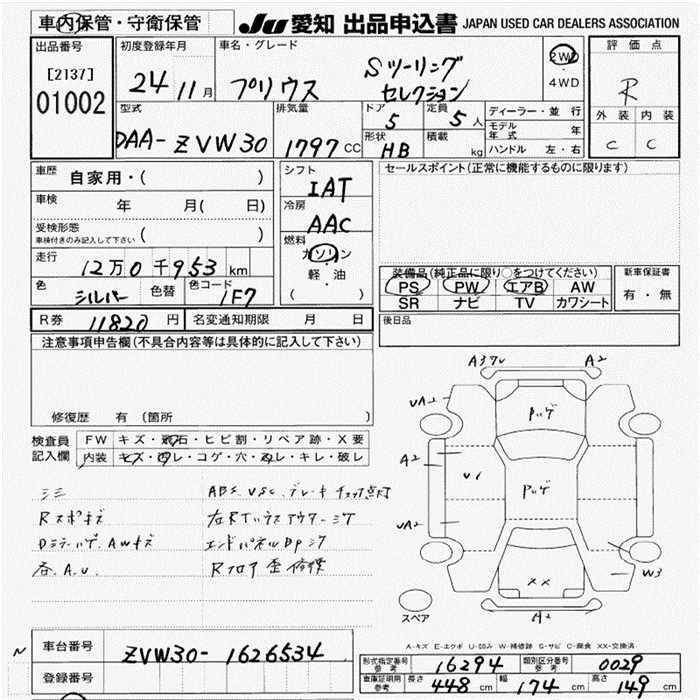 車内保管・守衛保管
JU 愛知 出品申込書 JAPAN USED CAR DEALERS ASSOCIATION
出品番号
[2137]
01002
初度登録年月
24 11月
車名・グレード
プリウス
Sツーリング
セレクション
2WD
・
4WD
評価点
R
外装 内装
C C
型式
DAA-ZVW30
排気量
1797 CC
ドア
5
定員
5人
形状
HB
積載
kg
ディーラー・並行
モデル年式 年
ハンドル 左・右
車歴
自家用・( )
車検
年 月( 日)
受検形態
車検付きのみ記入して下さい ( )
走行
12万0千953 km
色
シルバー
色替
色コード
1F7
シフト
IAT
冷房
AAC
燃料
ガソリン
・
軽・油
( )
セールスポイント(正常に機能するものに限ります)
装備品(純正品に限り○をつけてください)
PS PW エアB AW
SR ナビ TV カワシート
新車保証書
有・無
R券 11820 円
名変通知期限 月 日
後日品
注意事項申告欄(不具合内容等は具体的に記入して下さい)
修復歴 有 (箇所 )
検査員
記入欄
FW キズ・飛石・ヒビ割・リペア跡・X要
内装 キズ・汚レ・コゲ・穴・スレ・キレ・破レ
ABS. VSC. ブレーキ チェック点灯
Rスポキズ
AWキズ
A.U.
エンドパネル
Rフロア 歪 修復
A37U A2
UA2
A2
UA2
U1
XX
W3
A2
スペア
A-キズ E-エクボ U-凹み W-補修跡 S-サビ C-腐食 XX-交換済
N
車台番号
ZVW30-1626534
登録番号
形式指定番号
参考
16294
類別区分番号
参考
0029
車庫証明用
参考
長さ 448 cm 幅 174 cm 高さ 149 cm